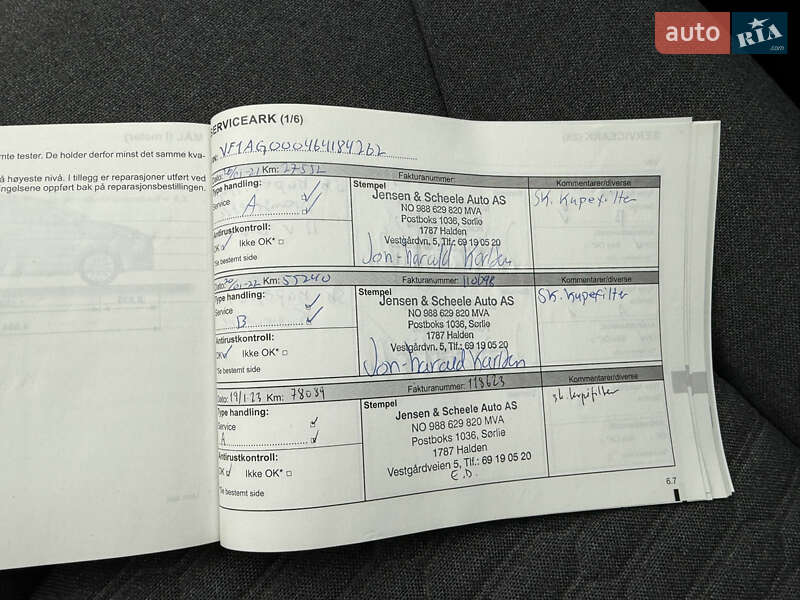 auto RIA.com
SERVICEARK (1/6)
VF1AG000464184262
mte tester. De holder derfor minst det samme kva-
å høyeste nivå. I tillegg er reparasjoner utført ved
ngelsene oppført bak på reparasjonsbestillingen.
01-21 Km: 27552 Fakturanummer: Kommentarer/diverse
Type handling:
Service
A
Antirustkontroll:
OK Ikke OK* □
*Se bestemt side
Stempel
Jensen & Scheele Auto AS
NO 988 629 820 MVA
Postboks 1036, Sørlie
1787 Halden
Vestgårdvn. 5, Tlf.: 69 19 05 20
Jon-harald Karlsen
Sk. Kupefilter
01-22 Km: 55240 Fakturanummer: 110098 Kommentarer/diverse
Type handling:
Service
B
Antirustkontroll:
OK Ikke OK* □
*Se bestemt side
Stempel
Jensen & Scheele Auto AS
NO 988 629 820 MVA
Postboks 1036, Sørlie
1787 Halden
Vestgårdvn. 5, Tlf.: 69 19 05 20
Jon-harald Karlsen
SK. Kupefilter
Dato: 19/1-23 Km: 78089 Fakturanummer: 118623 Kommentarer/diverse
Type handling:
Service
A
Antirustkontroll:
OK Ikke OK* □
*Se bestemt side
Stempel
Jensen & Scheele Auto AS
NO 988 629 820 MVA
Postboks 1036, Sørlie
1787 Halden
Vestgårdveien 5, Tlf.: 69 19 05 20
E.D.
sk. kupefilter
6.7